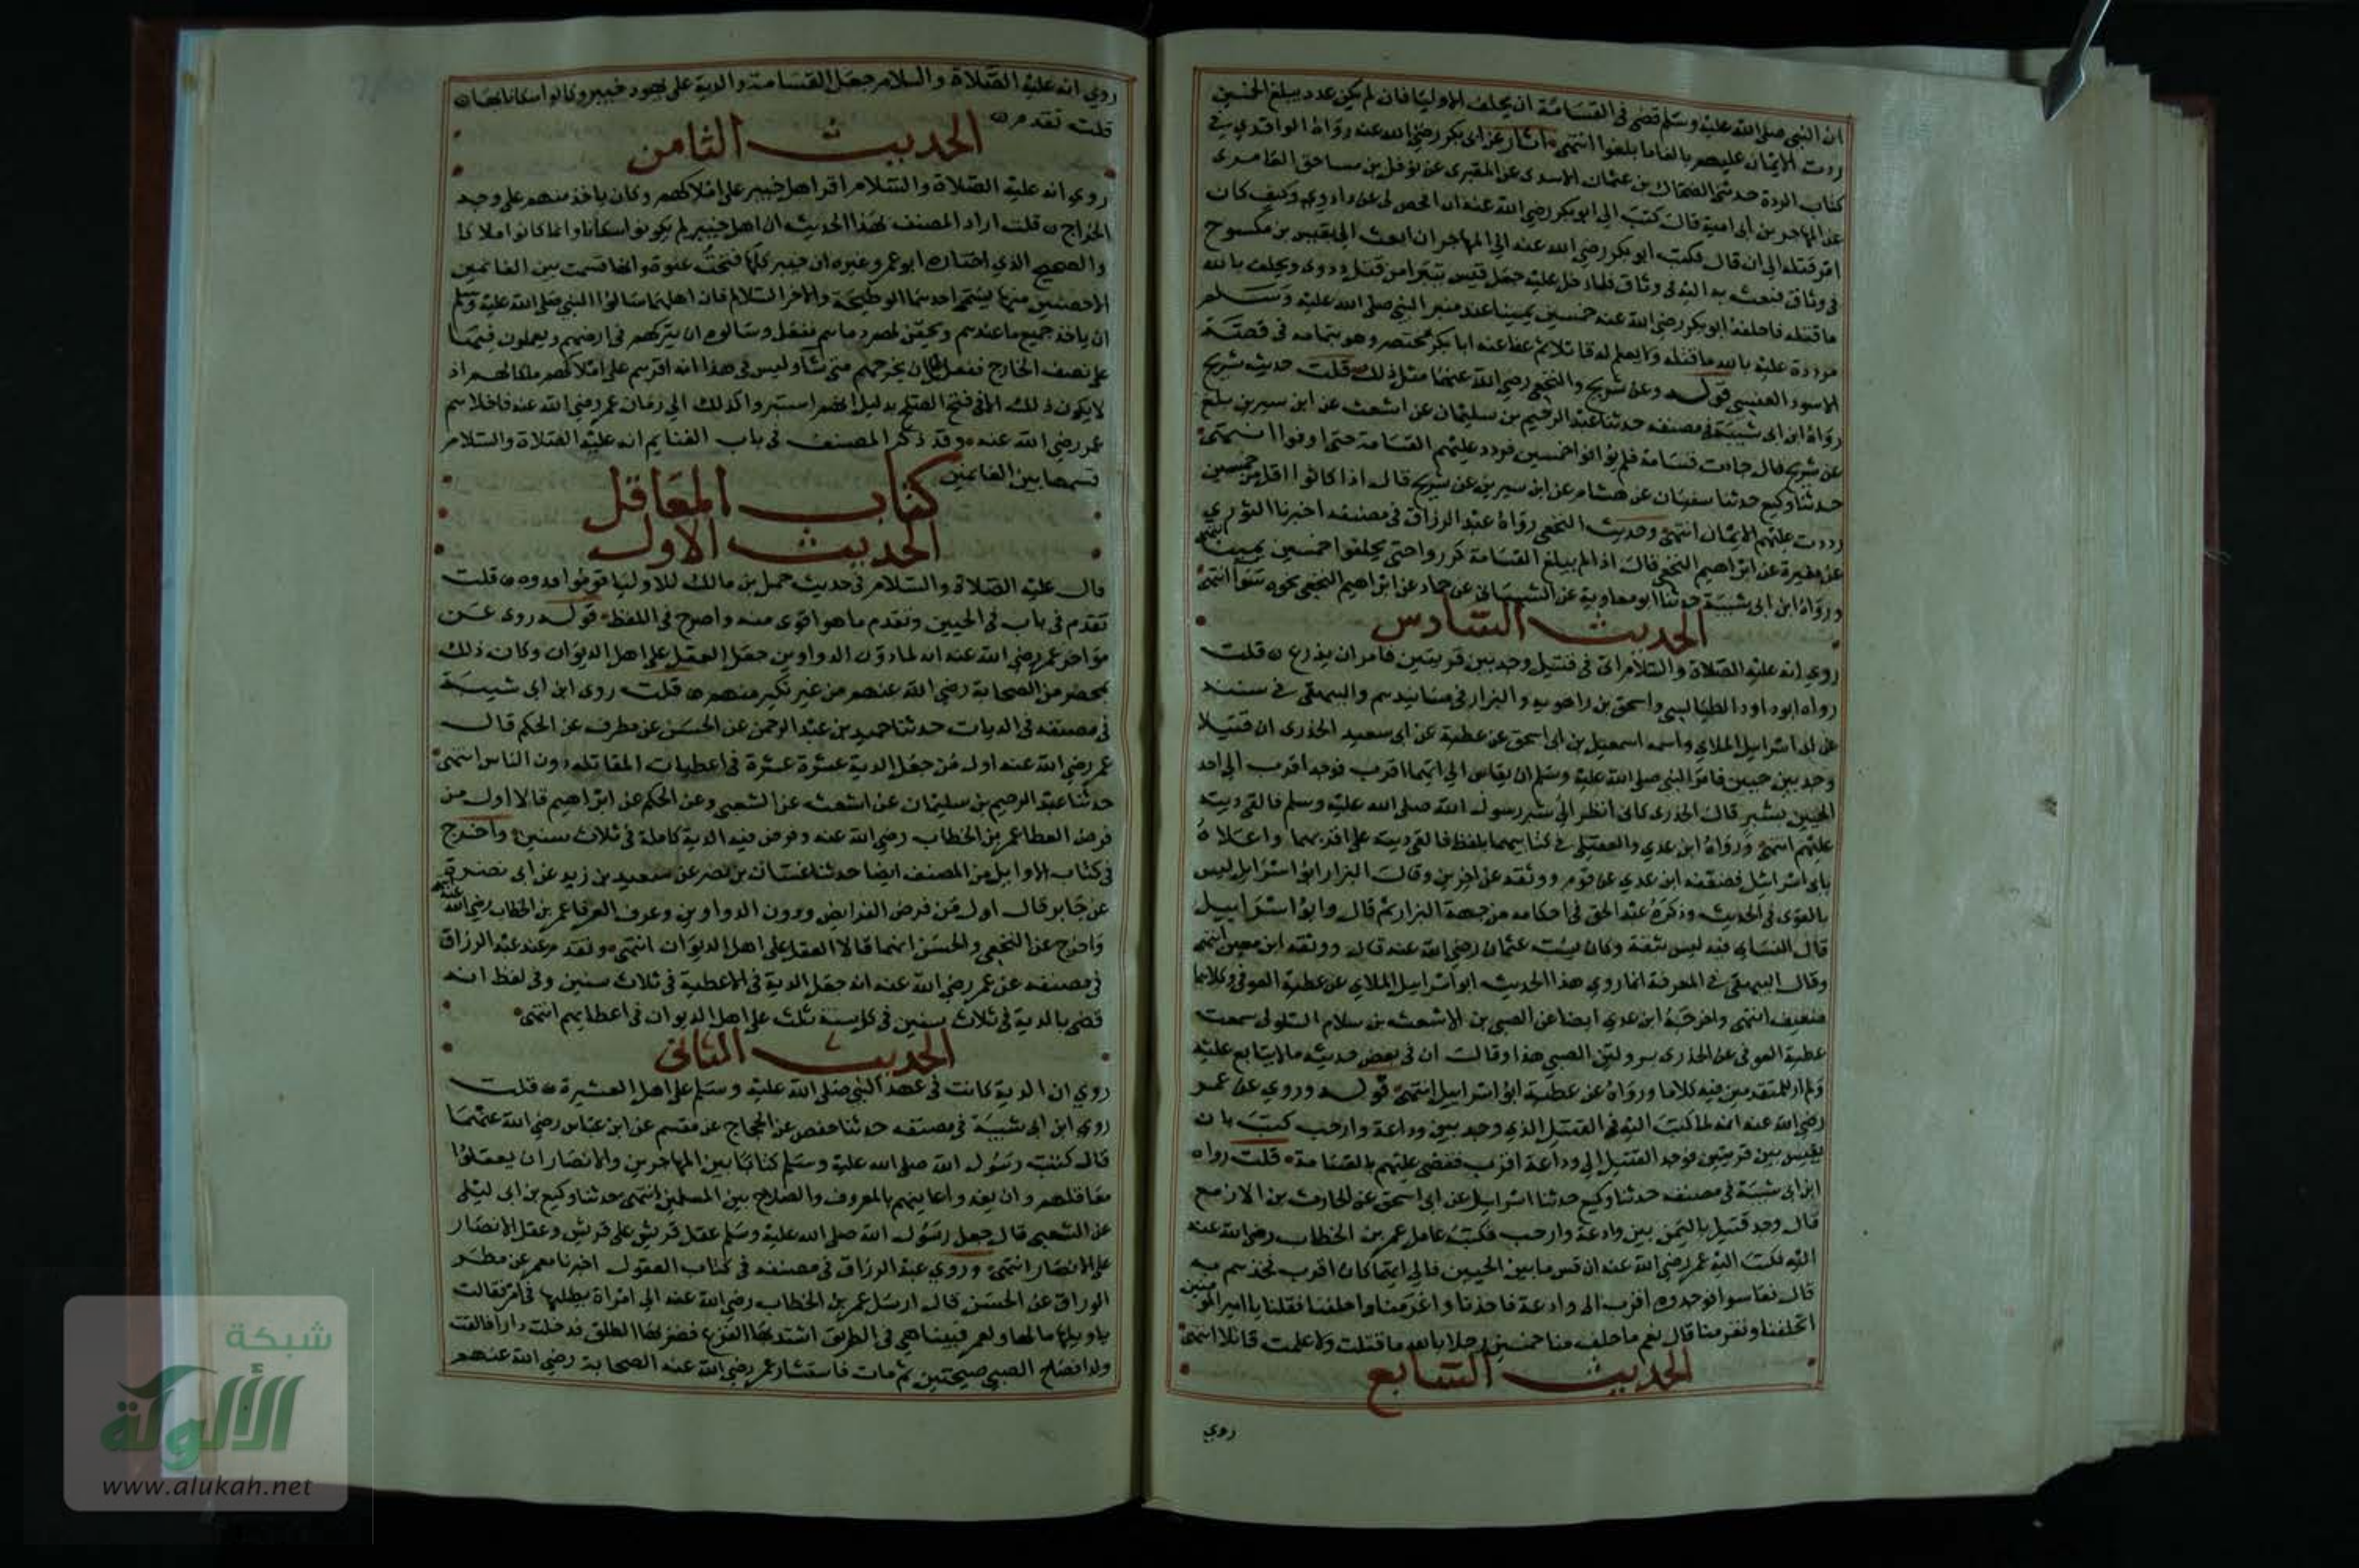 ان النبي صلى الله عليه وسلم قضى في القسامة ان يحلف الاوليا فان لم يكن عدد يبلغ الخمسين
ردت الايمان عليهم بالغا ما بلغوا انتهى اثار عن ابى بكر رضي الله عنه رواه الواقدي في
كتاب الردة حدثني الضحاك بن عثمان الاسدى عن المقبرى عن نوفل بن مساحق العامرى
عن المهاجر بن أبى امية قال كتب الي ابو بكر رضي الله عنه ان افحص لى عن داذوى وكيف كان
امر قتله الى ان قال فكتب ابو بكر رضي الله عنه الي المهاجر ان ابعث الي بقيس بن مكسوح
فى وثاق فبعث به اليه فى وثاق فلما دخل عليه جعل قيس يتبرا من قتل داذوى ويحلف بالله
ما قتله فاحلفه ابو بكر رضي الله عنه خمسين يمينا عند منبر النبي صلى الله عليه وسلم
مرددة عليه بالله ما قتله ولا يعلم له قاتلا ثم عفا عنه ابا بكر مختصر وهو بتمامه فى قصة
الاسود العنسى قوله وعن شريح والنخعي رضي الله عنهما مثل ذلك قلت حديث شريح
رواه ابن ابى شيبة فى مصنفه حدثنا عبد الرحيم بن سليمان عن اشعث عن ابن سيرين
عن شريح قال جات قسامة فلم يوافوا خمسين فردد عليهم القسامة حتى اوفوا انتهى
حدثنا وكيع حدثنا سفيان عن هشام عن ابن سيرين عن شريح قال اذا كانوا اقل من خمسين
رددت عليهم الايمان انتهى وحديث النخعي رواه عبد الرزاق فى مصنفه اخبرنا الثورى
عن مغيرة عن ابراهيم النخعي قال اذا لم يبلغ القسامة كرروا حتى يحلفوا خمسين يمينا انتهى
ورواه ابن ابى شيبة حدثنا ابو معاوية عن الشيبانى عن حماد عن ابراهيم النخعي نحوه سوا انتهى
الحديث السادس
روي انه عليه الصلاة والسلام اتى فى قتيل وجد بين قريتين فامر ان يذرع قلت
رواه ابو داود الطيالسي واسحق بن راهويه والبزار فى مسانيدهم والبيهقى فى سننه
عن ابى اسرائيل الملاي واسمه اسمعيل بن ابى اسحق عن عطية عن ابى سعيد الخدرى ان قتيلا
وجد بين حيين فامر النبي صلى الله عليه وسلم ان يقاس الي ايتهما اقرب فوجد اقرب الي احد
الحيين بشبر قال الخدرى كانى انظر الي شبر رسول الله صلى الله عليه وسلم فالقى ديته
عليهم انتهى ورواه ابن عدي والعقيلى فى كتابيهما بلفظ فالقى ديته على اقربهما واعلاه
بابى اسرائيل فضعفه ابن عدي عن قوم ووثقه عن اخرين وقال البزار ابو اسرائيل ليس
بالقوى فى الحديث وذكره عبد الحق فى احكامه من جهة البزار ثم قال وابو اسرائيل
قال النساى فيه ليس بثقة وكان يسب عثمان رضي الله عنه قال ووثقه ابن معين انتهى
وقال البيهقى فى المعرفة انما روى هذا الحديث ابو اسرائيل الملاي عن عطية العوفى وكلاهما
ضعيف انتهى واخرجه ابن عدي ايضا عن الصبى بن الاشعث بن سلام السلولى سمعت
عطية العوفى عن الخدرى به ولين الصبى هذا وقال ان فى بعض حديثه ما لا يتابع عليه
ولم ار للمتقدمين فيه كلاما ورواه عن عطية ابو اسرائيل انتهى قوله وروي عن عمر
رضي الله عنه انه لما كتب اليه فى القتيل الذي وجد بين وداعة وارحب كتب بان
يقيس بين قريتين فوجد القتيل الي وداعة اقرب فقضى عليهم بالقسامة قلت رواه
ابن ابى شيبة فى مصنفه حدثنا وكيع حدثنا اسرائيل عن ابى اسحق عن الحارث بن الازمع
قال وجد قتيل باليمن بين وادعة وارحب فكتب عامل عمر بن الخطاب رضي الله عنه
اليه فكتب اليه عمر رضي الله عنه ان قس ما بين الحيين فالي ايهما كان اقرب فخذهم به
قال فقاسوا فوجدوه اقرب الى وادعة فاخذنا واغرمنا واحلفنا فقلنا يا امير المومنين
اتحلفنا وتغرمنا قال نعم فاحلف منا خمسين رجلا بالله ما قتلت ولا علمت قاتلا انتهى
الحديث السابع
روي
روي انه عليه الصلاة والسلام جعل القسامة والدية على يهود خيبر وكانوا سكانا بها
قلت تقدم
الحديث الثامن
روي انه عليه الصلاة والسلام اقر اهل خيبر على املاكهم وكان ياخذ منهم على وجه
الخراج قلت اراد المصنف بهذا الحديث ان اهل خيبر لم يكونوا سكانا وانما كانوا ملاكا
والصحيح الذي اختاره ابو عمر وغيره ان خيبر كلها فتحت عنوة وانها قسمت بين الغانمين
الا حصنين منها يسمى احدهما الوطيحة والاخر السلالم فان اهلهما سالوا النبي صلى الله عليه وسلم
ان ياخذ جميع ما عندهم ويحقن لهم دماهم ففعل وسالوه ان يتركهم فى ارضهم ويعملون فيها
على نصف الخارج ففعل على ان يخرجهم متى شا وليس فى هذا انه اقرهم على املاكهم ملكا لهم اذ
لا يكون ذلك الا فى فتح الصلح بدليل انهم استمروا كذلك الي زمان عمر رضي الله عنه فاجلاهم
عمر رضي الله عنه وقد ذكر المصنف فى باب الغنايم انه عليه الصلاة والسلام
قسمها بين الغانمين
كتاب المعاقل
الحديث الاول
قال عليه الصلاة والسلام فى حديث حمل بن مالك للاوليا قوموا فدوه قلت
تقدم فى باب فى الجنين وتقدم ما هو اقوى منه واصرح فى اللفظ قوله روى عن
عمر رضي الله عنه انه لما دون الدواوين جعل العقل على اهل الديوان وكان ذلك
بمحضر من الصحابة رضي الله عنهم من غير نكير منهم قلت روى ابن ابى شيبة
فى مصنفه فى الديات حدثنا حميد بن عبد الرحمن عن الحسن عن مطرف عن الحكم قال
عمر رضي الله عنه اول من جعل الدية عشرة عشرة فى اعطيات المقاتله دون الناس انتهى
حدثنا عبد الرحيم بن سليمان عن اشعث عن الشعبى وعن الحكم عن ابراهيم قالا اول من
فرض العطا عمر بن الخطاب رضي الله عنه وفرض فيه الدية كاملة فى ثلاث سنين واخرج
فى كتاب الاوايل من المصنف ايضا حدثنا غسان بن نضر عن سعيد بن زيد عن ابى نضرة
عن جابر قال اول من فرض الفرايض ودون الدواوين وعرف العرفا عمر بن الخطاب رضي الله عنه انتهى
واخرج عن النخعي والحسن انهما قالا العقل على اهل الديوان انتهى وتقدم عند عبد الرزاق
فى مصنفه عن عمر رضي الله عنه انه جعل الدية فى الاعطية فى ثلاث سنين وفى لفظ انه
قضى بالدية فى ثلاث سنين فى كل سنة ثلث على اهل الديوان فى اعطياتهم انتهى
الحديث الثانى
روي ان الدية كانت فى عهد النبي صلى الله عليه وسلم على اهل العشيرة قلت
روى ابن ابى شيبة فى مصنفه حدثنا حفص عن الحجاج عن مقسم عن ابن عباس رضي الله عنهما
قال كتب رسول الله صلى الله عليه وسلم كتابا بين المهاجرين والانصار ان يعقلوا
معاقلهم وان يفدوا عانيهم بالمعروف والصلاح بين المسلمين انتهى حدثنا وكيع بن ابى ليلى
عن الشعبى قال جعل رسول الله صلى الله عليه وسلم عقل قريش على قريش وعقل الانصار
على الانصار انتهى وروي عبد الرزاق فى مصنفه فى كتاب العقول اخبرنا معمر عن مطر
الوراق عن الحسن قال ارسل عمر بن الخطاب رضي الله عنه الي امراة يطلبها فى امر فقالت
يا ويلها ما لها ولعمر فبينا هي فى الطريق اشتد بها الفزع فضربها الطلق فدخلت دارا فالقت
ولدا فصاح الصبى صيحتين ثم مات فاستشار عمر رضي الله عنه الصحابة رضي الله عنهم
شبكة
الألوكة
www.alukah.net